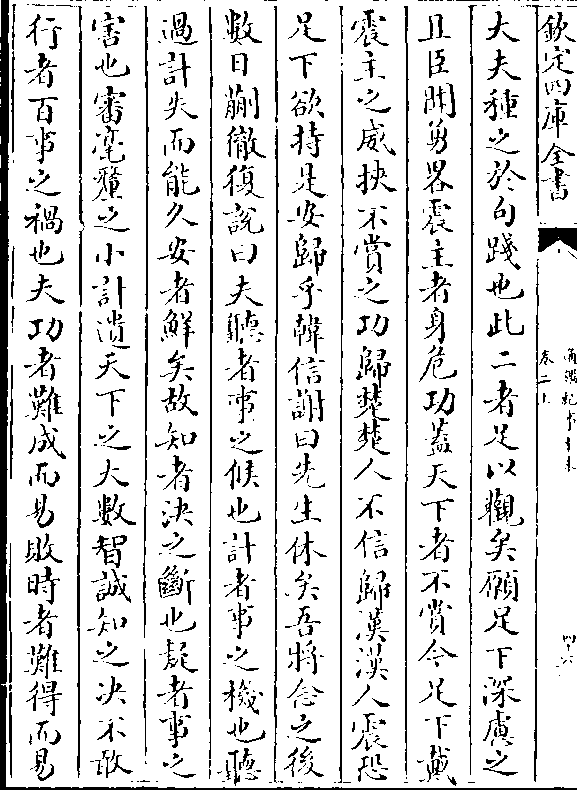 欽定四庫全書
通鑑紀事本末
卷二上
四十六
大夫種之於句踐也此二者足以觀矣願足下深慮之
且臣聞勇畧震主者身危功蓋天下者不賞今足下戴
震主之威挾不賞之功歸楚楚人不信歸漢漢人震恐
足下欲持是安歸乎韓信謝曰先生休矣吾將念之後
數日蒯徹復說曰夫聽者事之候也計者事之機也聽
過計失而能久安者鮮矣故知者決之斷也疑者事之
害也審毫釐之小計遺天下之大數智誠知之決不敢
行者百事之禍也夫功者難成而易敗時者難得而易